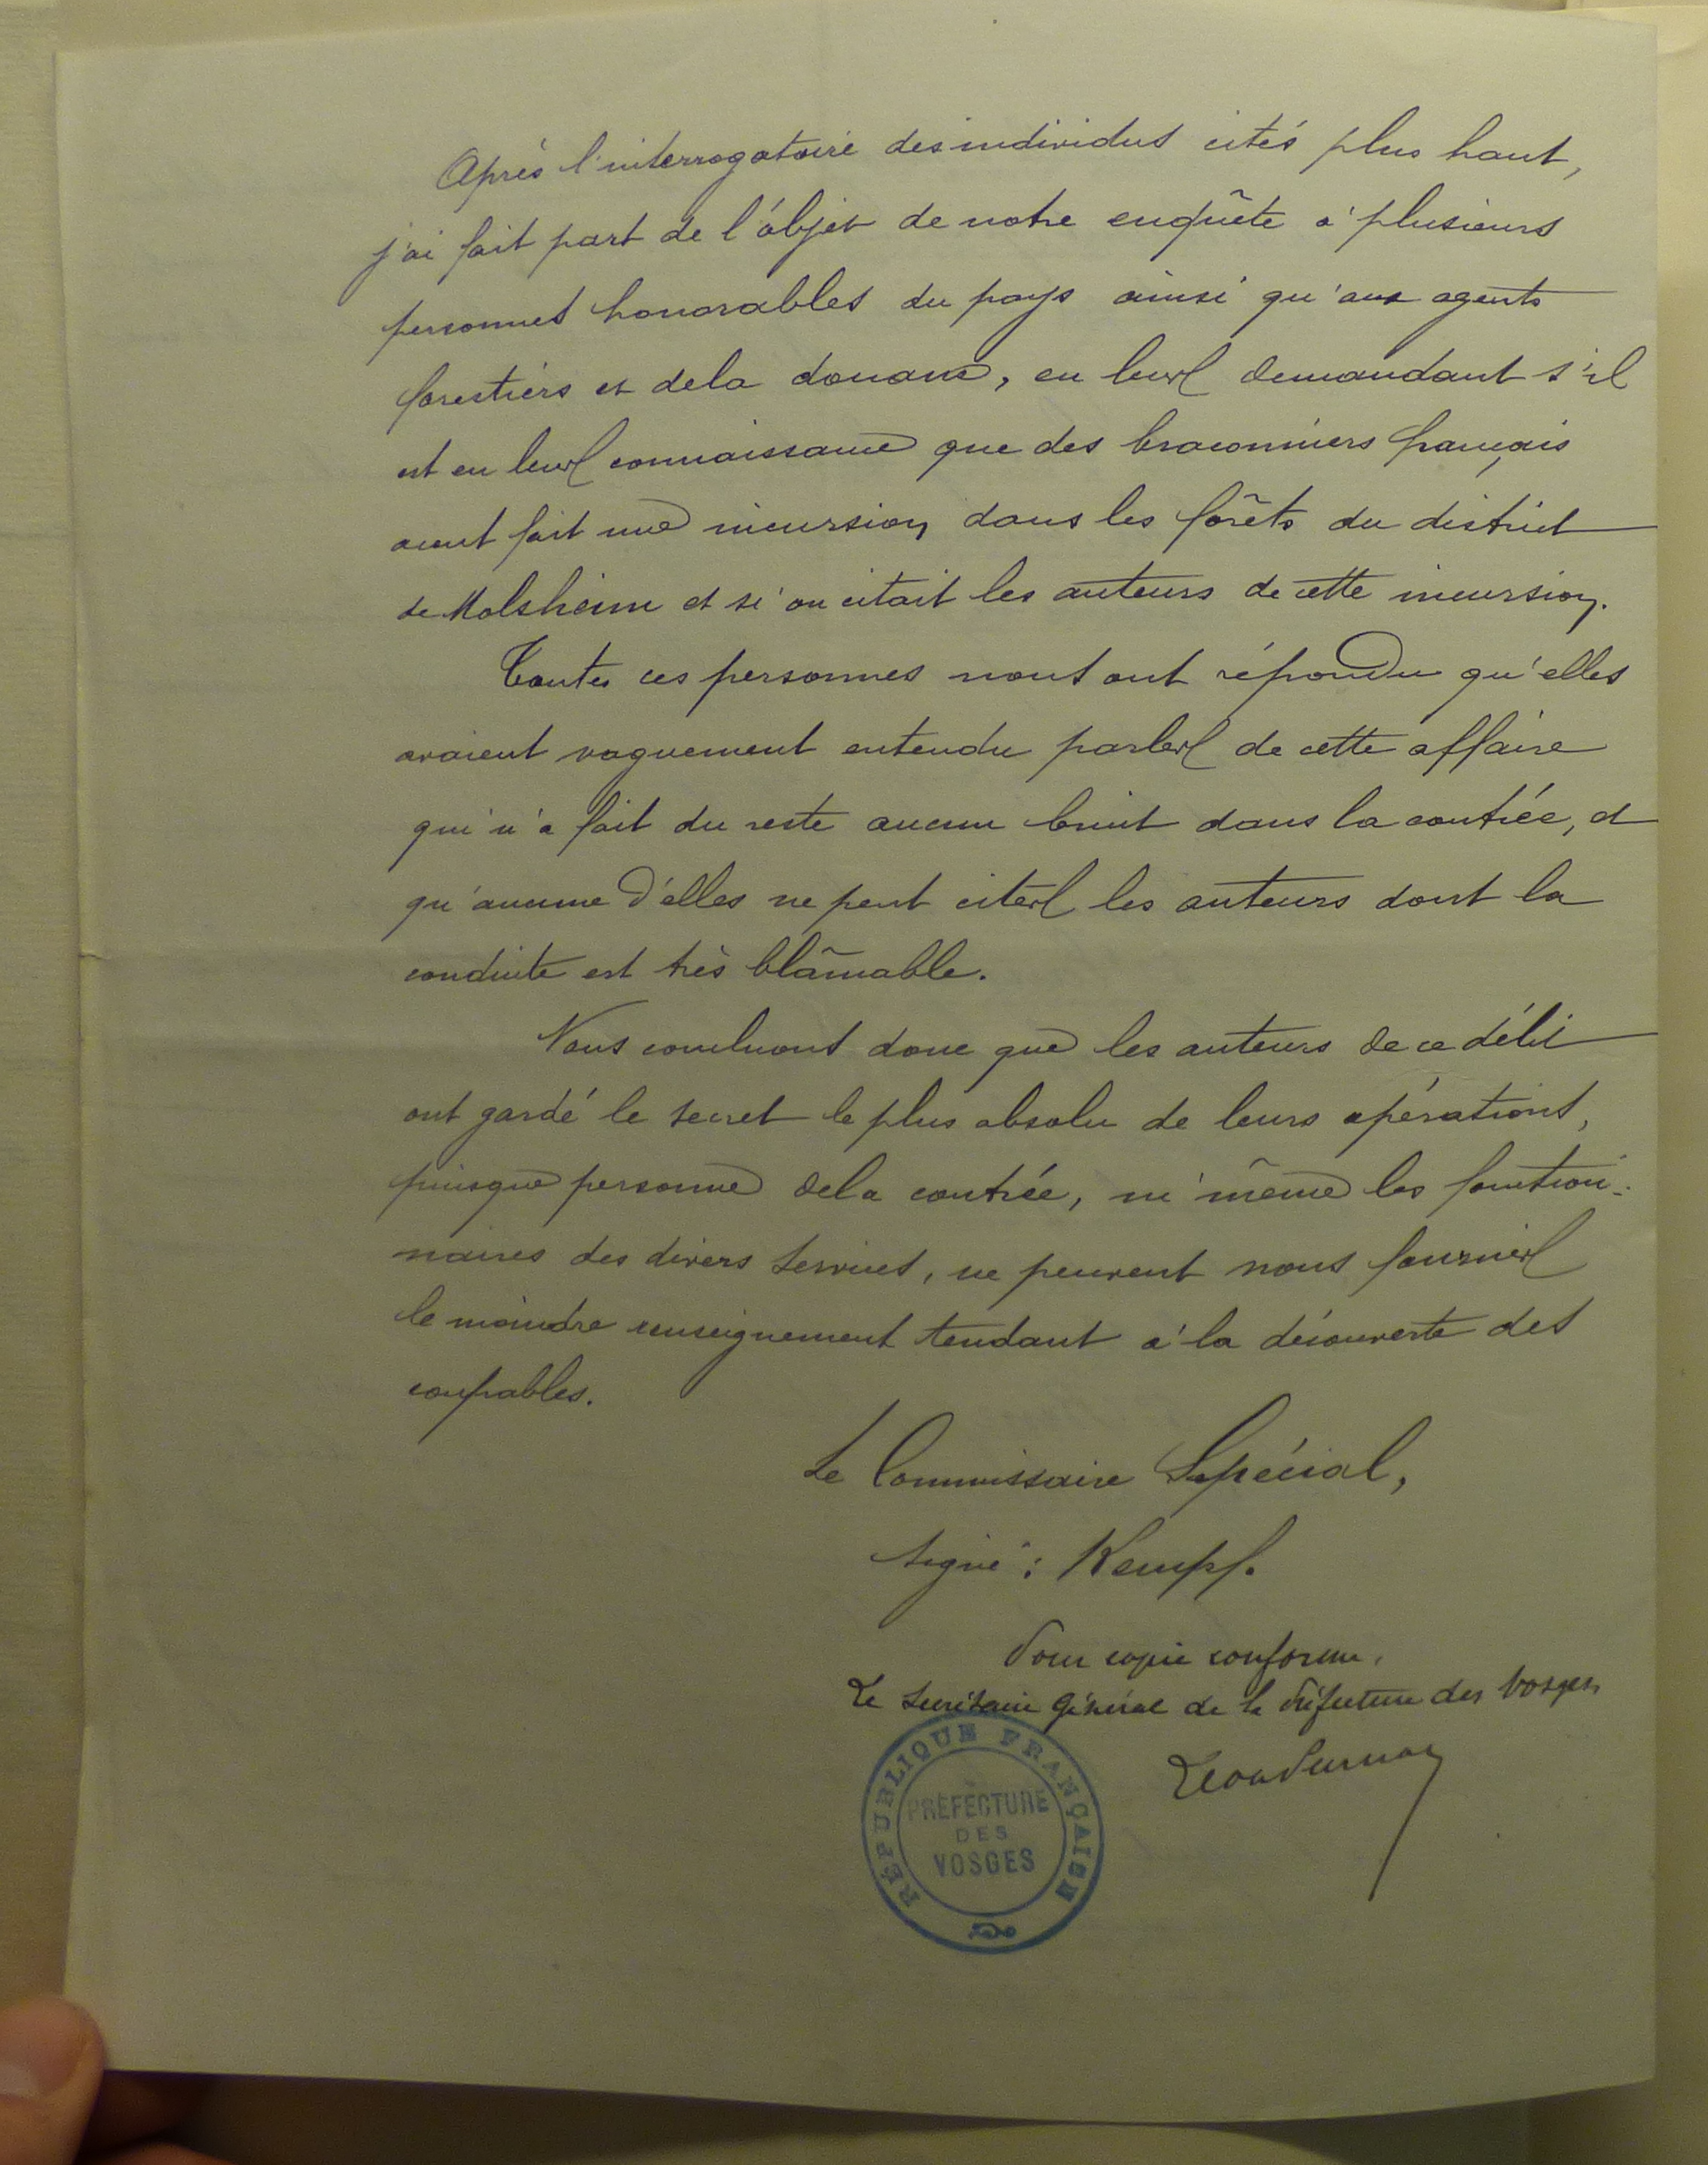 Après l'interrogatoire des individus cités plus haut,
j'ai fait part de l'objet de notre enquête à plusieurs
personnes honorables du pays ainsi qu'aux agents
forestiers et de la douane, en leur demandant s'il
est en leur connaissance que des braconniers français
aient fait une incursion dans les forêts du district
de Molsheim et si on citait les auteurs de cette incursion.
Toutes ces personnes nous ont répondu qu'elles
avaient vaguement entendu parler de cette affaire
qui n'a fait du reste aucun bruit dans la contrée, et
qu'aucune d'elles ne peut citer les auteurs dont la
conduite est très blâmable.
Nous concluons donc que les auteurs de ce délit
ont gardé le secret le plus absolu de leurs opérations,
puisque personne de la contrée, ni même les fonction-
naires des divers services, ne peuvent nous fournir
le moindre renseignement tendant à la découverte des
coupables.
Le Commissaire Spécial,
signé : Kempf.
Pour copie conforme,
Le Secrétaire Général de la Préfecture des Vosges
RÉPUBLIQUE FRANÇAISE
PRÉFECTURE
DES
VOSGES